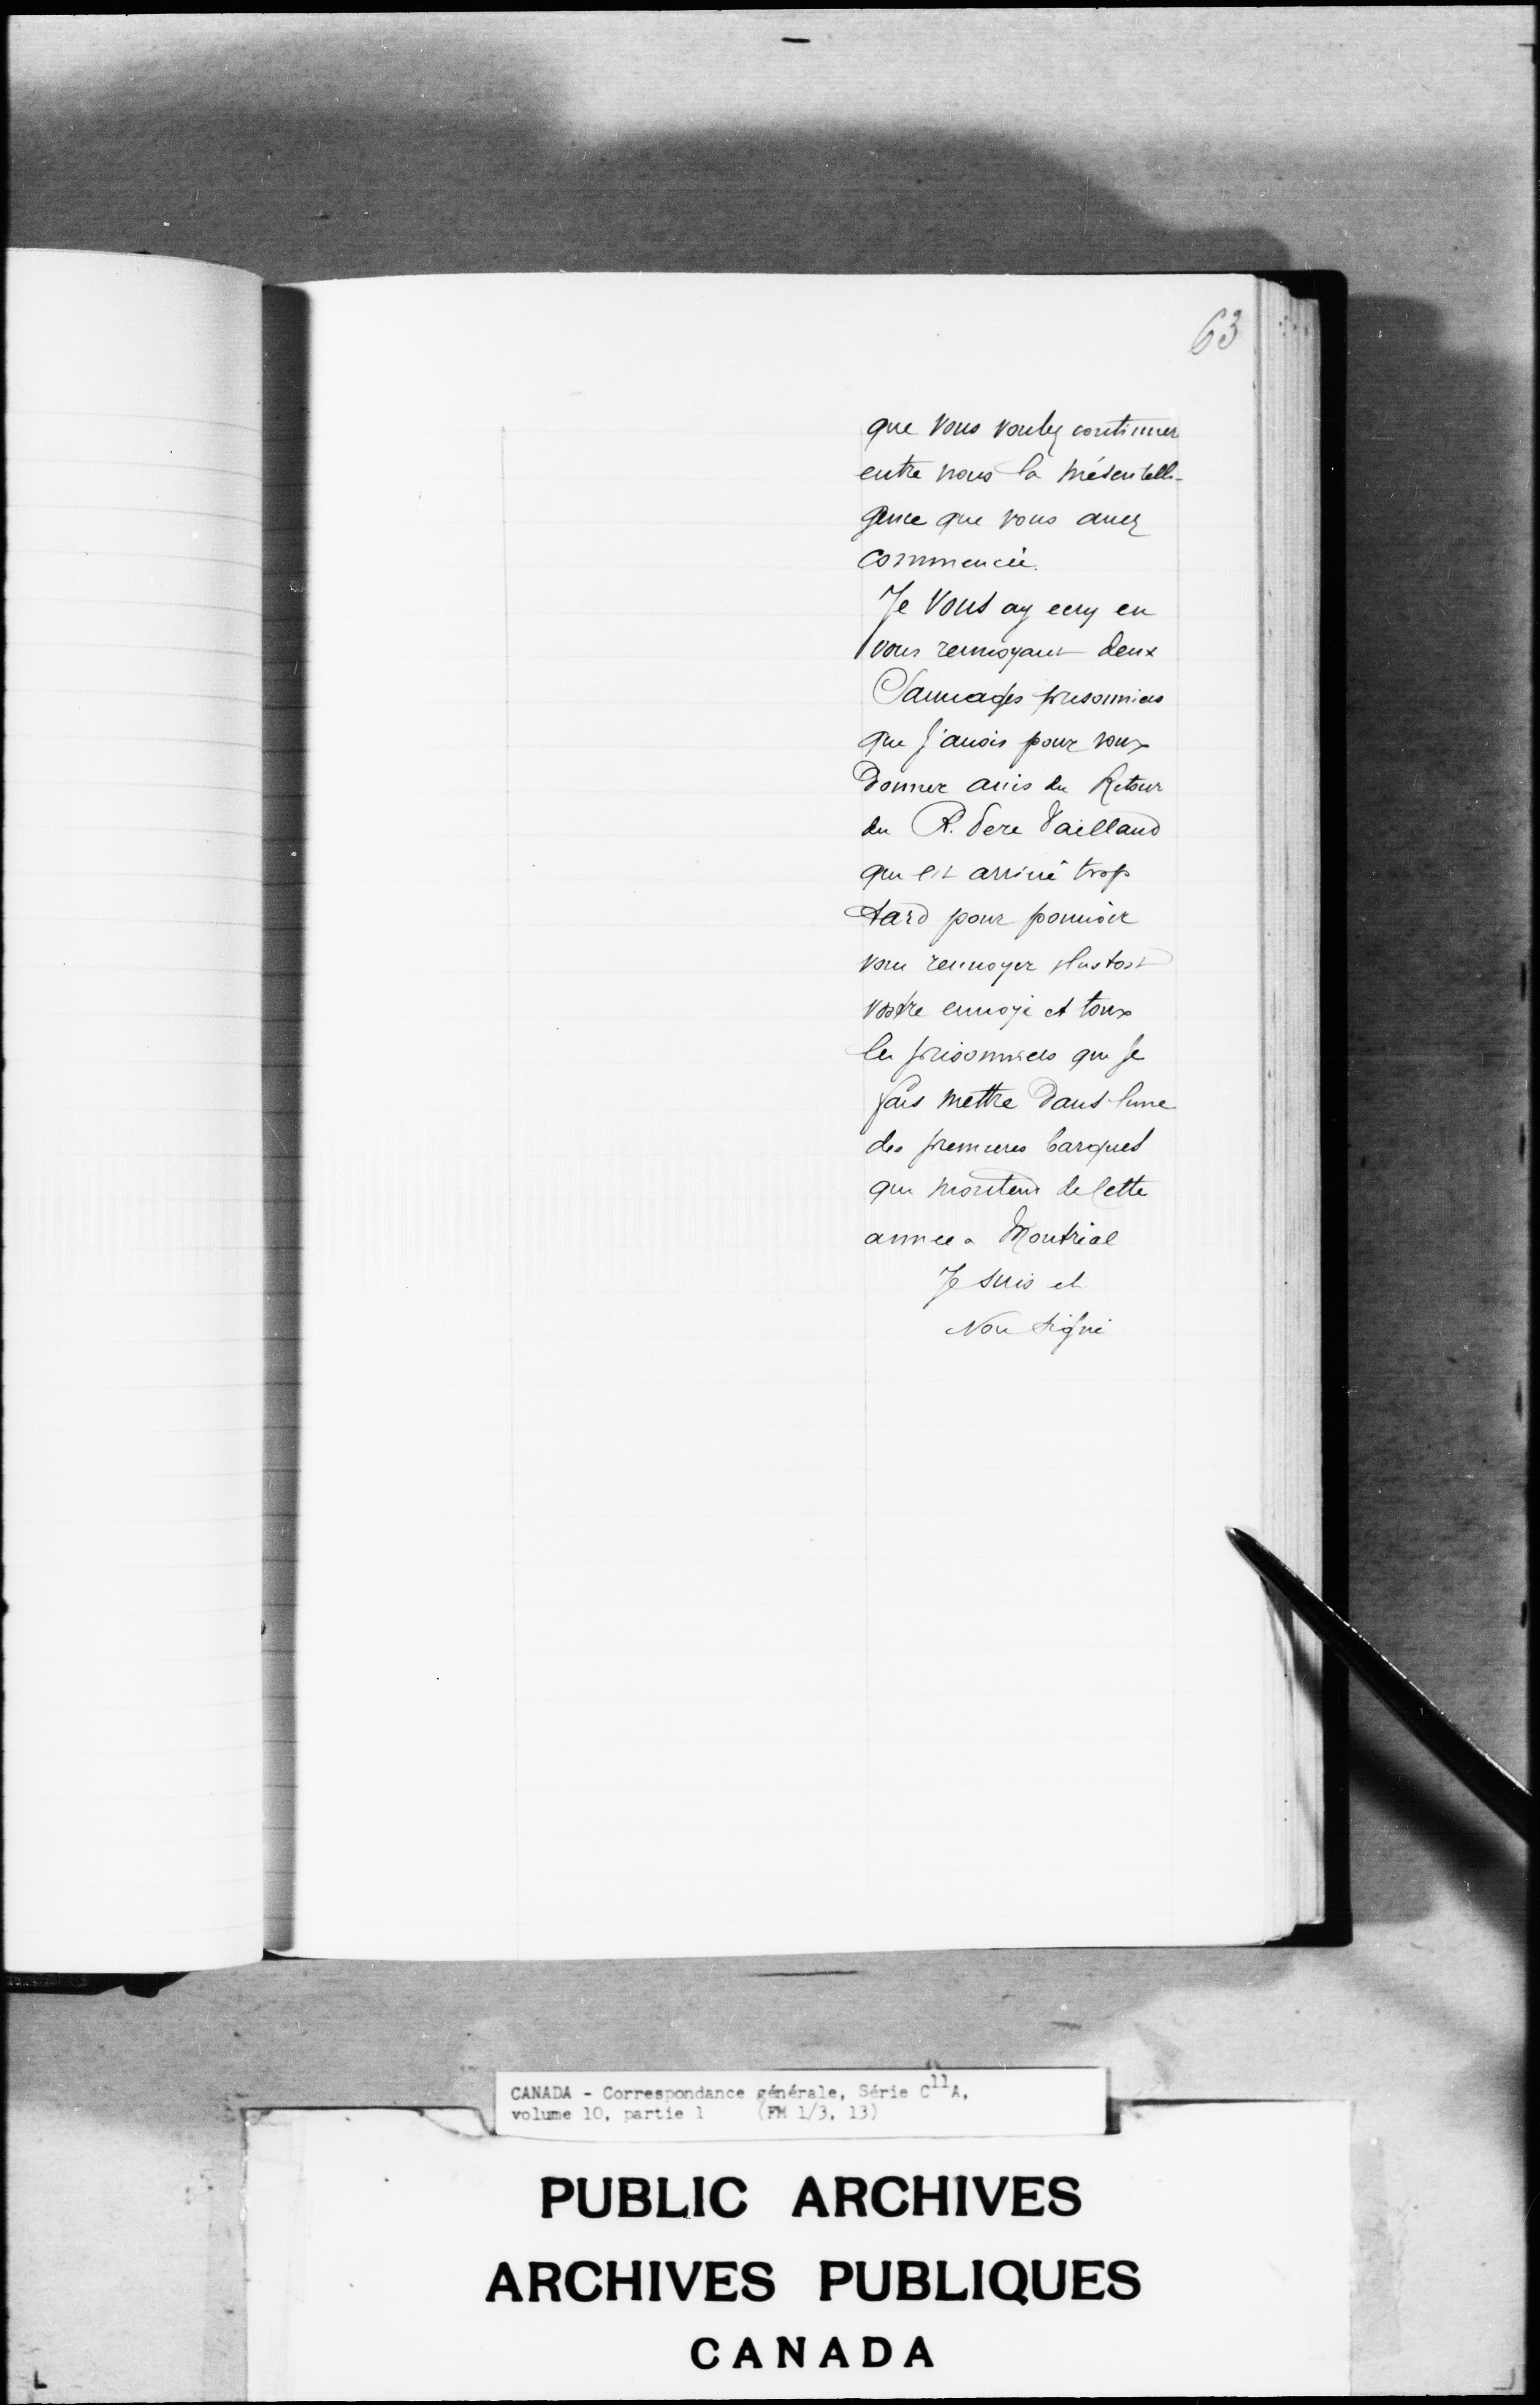 63
que vous voulez continuer
entre nous la mésentelli-
gence que vous auez
commencée.
Je Vous ay ecry en
vous renuoyant deux
Sauuages prisonniers
que j'auois pour vous
Donner auis du Retour
du R. Pere Vailland
qui est arriué trop
tard pour pouuoir
vous renuoyer plustost
vostre enuoyé et tous
les prisonniers que je
fais mettre Dans lune
des premieres barques
qui montent de Cette
annee a Montréal
Je suis et
Non signé
CANADA - Correspondance générale, Série C11A,
volume 10, partie 1 (FM 1/3, 13)
PUBLIC ARCHIVES
ARCHIVES PUBLIQUES
CANADA